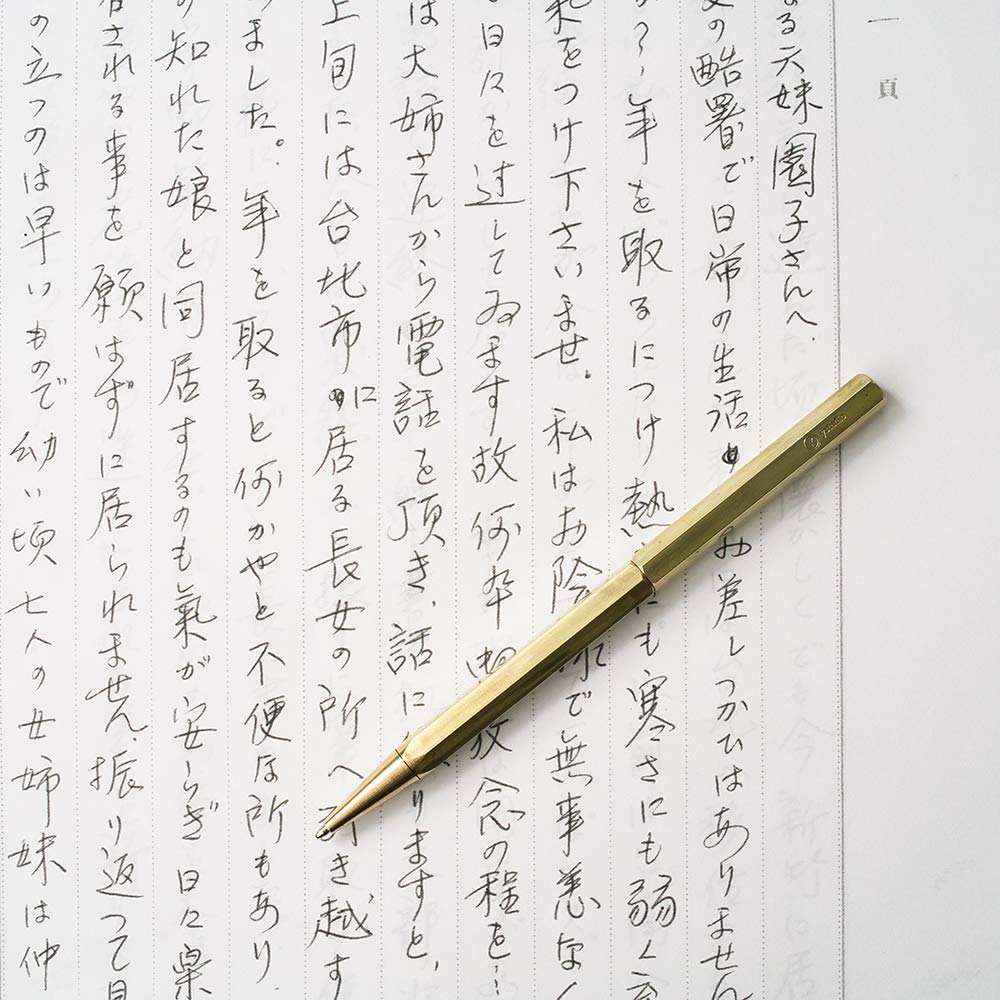 一頁
る六妹園子さんへ.
の酷署で日常の生活 お差しつかひはありません
か?年を取るにつけ熱 にも寒さにも弱く
気をつけ下さいませ。私はお陰 で無事恙なく
日々を过してゐます故何卆 放念の程を…
は大姉さんから電話を頂き、話に りますと、
上旬には台北市に居る長女の所へ引き越す
ました。年を取ると何かやと不便な所もあり
の知れた娘と同居するのも氣が安らぎ日に
される事を願はずに居られません、振り返って見
の立つのは早いもので幼い頃七人の女姉妹は仲